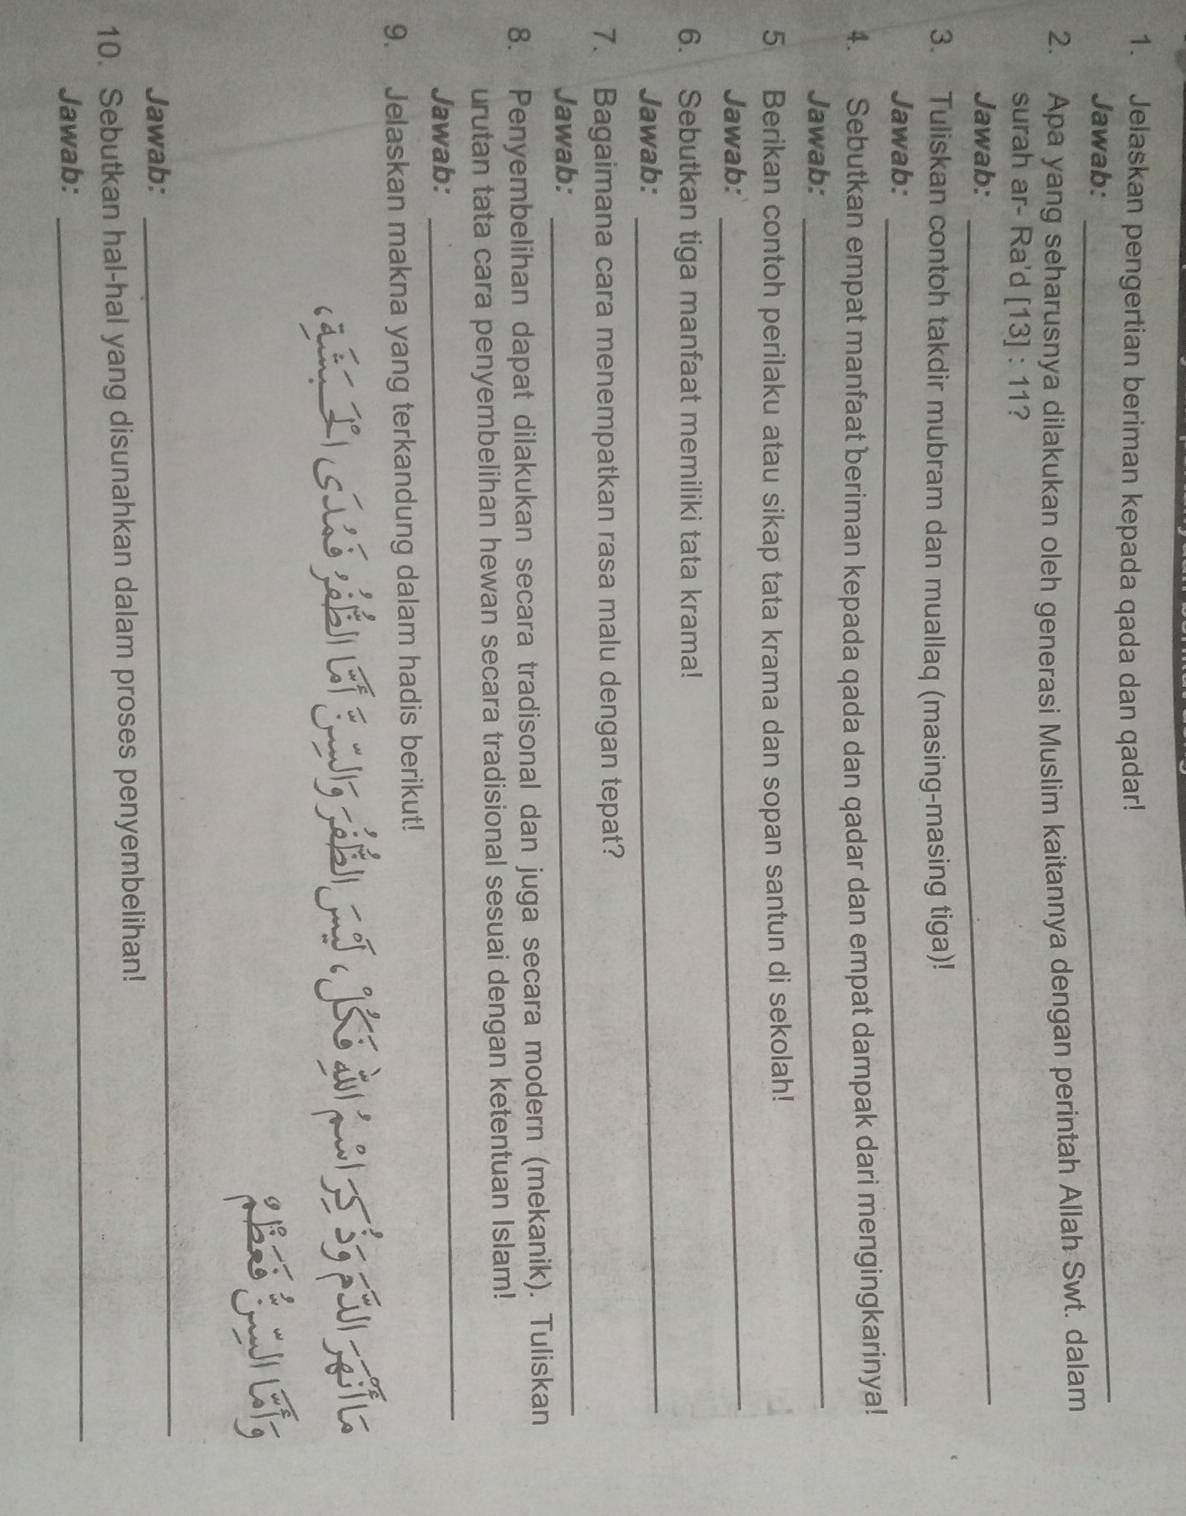 1. Jelaskan pengertian beriman kepada qada dan qadar!
Jawab:
2. Apa yang seharusnya dilakukan oleh generasi Muslim kaitannya dengan perintah Allah Swt. dalam
surah ar- Ra'd [13] : 11?
Jawab:
3. Tuliskan contoh takdir mubram dan muallaq (masing-masing tiga)!
Jawab:
4. Sebutkan empat manfaat beriman kepada qada dan qadar dan empat dampak dari mengingkarinya!
Jawab:
5 Berikan contoh perilaku atau sikap tata krama dan sopan santun di sekolah!
Jawab:
6. Sebutkan tiga manfaat memiliki tata krama!
Jawab:
7. Bagaimana cara menempatkan rasa malu dengan tepat?
Jawab:
8. Penyembelihan dapat dilakukan secara tradisonal dan juga secara modern (mekanik). Tuliskan
urutan tata cara penyembelihan hewan secara tradisional sesuai dengan ketentuan Islam!
Jawab:
9. Jelaskan makna yang terkandung dalam hadis berikut!
مَا أَنْهَرَ الدَّمَ وَذُكِرَ اسْمُ اللَّهِ فَكُلْ، لَيْسَ الظُّفُرَ وَالسِّنَّ أَمَّا الظُّفُرُ فَمُدَى الْحَبَشَةِ،
وَأَمَّا السِّنُّ فَعَظْمٌ
Jawab:
10. Sebutkan hal-hal yang disunahkan dalam proses penyembelihan!
Jawab: